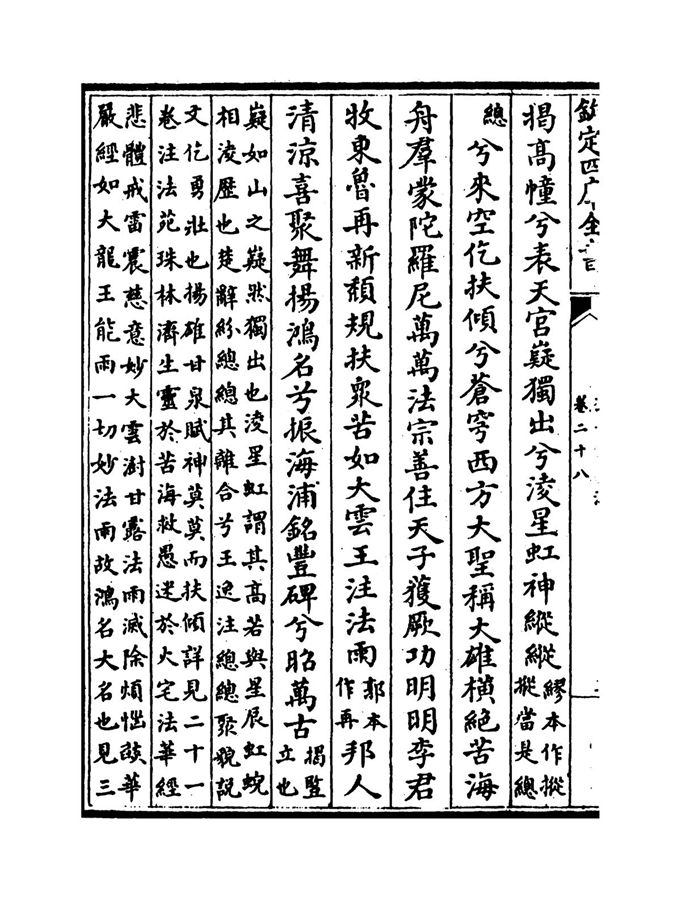 欽定四庫全書
卷二十八
揭髙幢兮表天宫嶷獨出兮淩星虹神縱縱繆本作摐
摐當是總
總兮來空仡扶傾兮蒼穹西方大聖稱大雄橫絶苦海
舟羣蒙陀羅尼萬萬法宗善住天子獲厥功明明李君
牧東魯再新頹規扶衆苦如大雲王注法雨郭本
作再邦人
清涼喜聚舞揚鴻名兮振海浦銘豐碑兮昭萬古揭豎
立也
嶷如山之嶷然獨出也淩星虹謂其髙若與星辰虹蜺
相淩歴也楚辭紛總總其離合兮王逸注總總聚貌説
文仡勇壯也揚雄甘泉賦神莫莫而扶傾詳見二十一
卷注法苑珠林濟生靈於苦海救愚迷於火宅法華經
悲體戒雷震慈意妙大雲澍甘露法雨滅除煩惱燄華
嚴經如大龍王能雨一切妙法雨故鴻名大名也見三